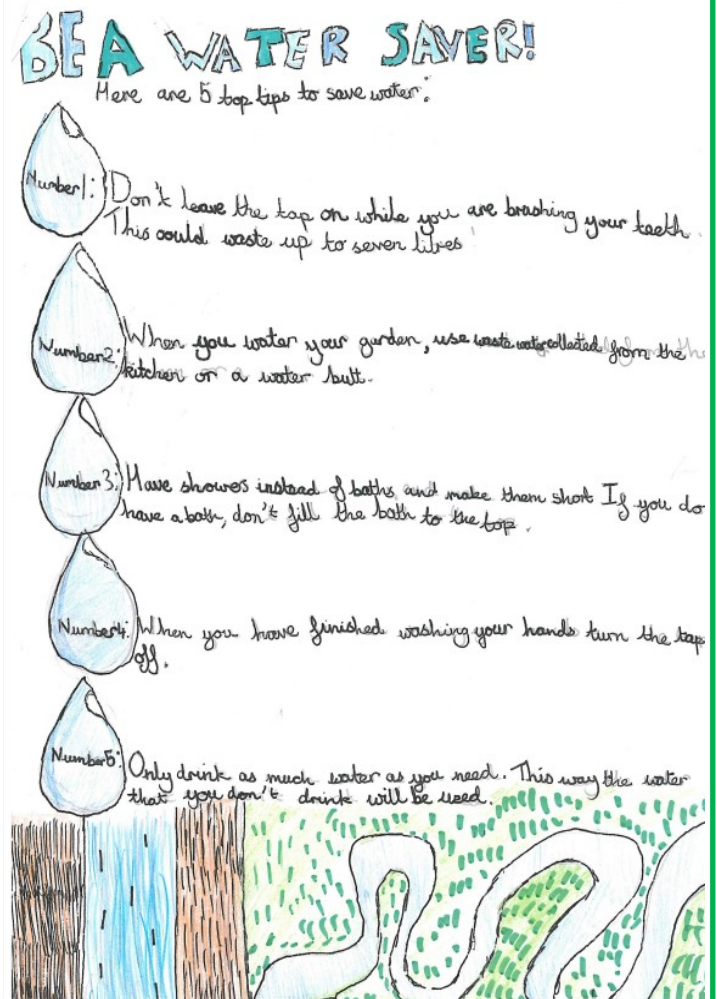 BE A WATER SAVER!
Here are 5 top tips to save water:
Number 1: Don't leave the tap on while you are brushing your teeth.
This could waste up to seven litres
Number 2: When you water your garden, use waste water collected from the
kitchen or a water butt.
Number 3: Have showes instead of baths and make them short If you do
have a bath, don't fill the bath to the top.
Number 4: When you have finished washing your hands turn the tap
off.
Number 5: Only drink as much water as you need. This way the water
that you don't drink will be used.